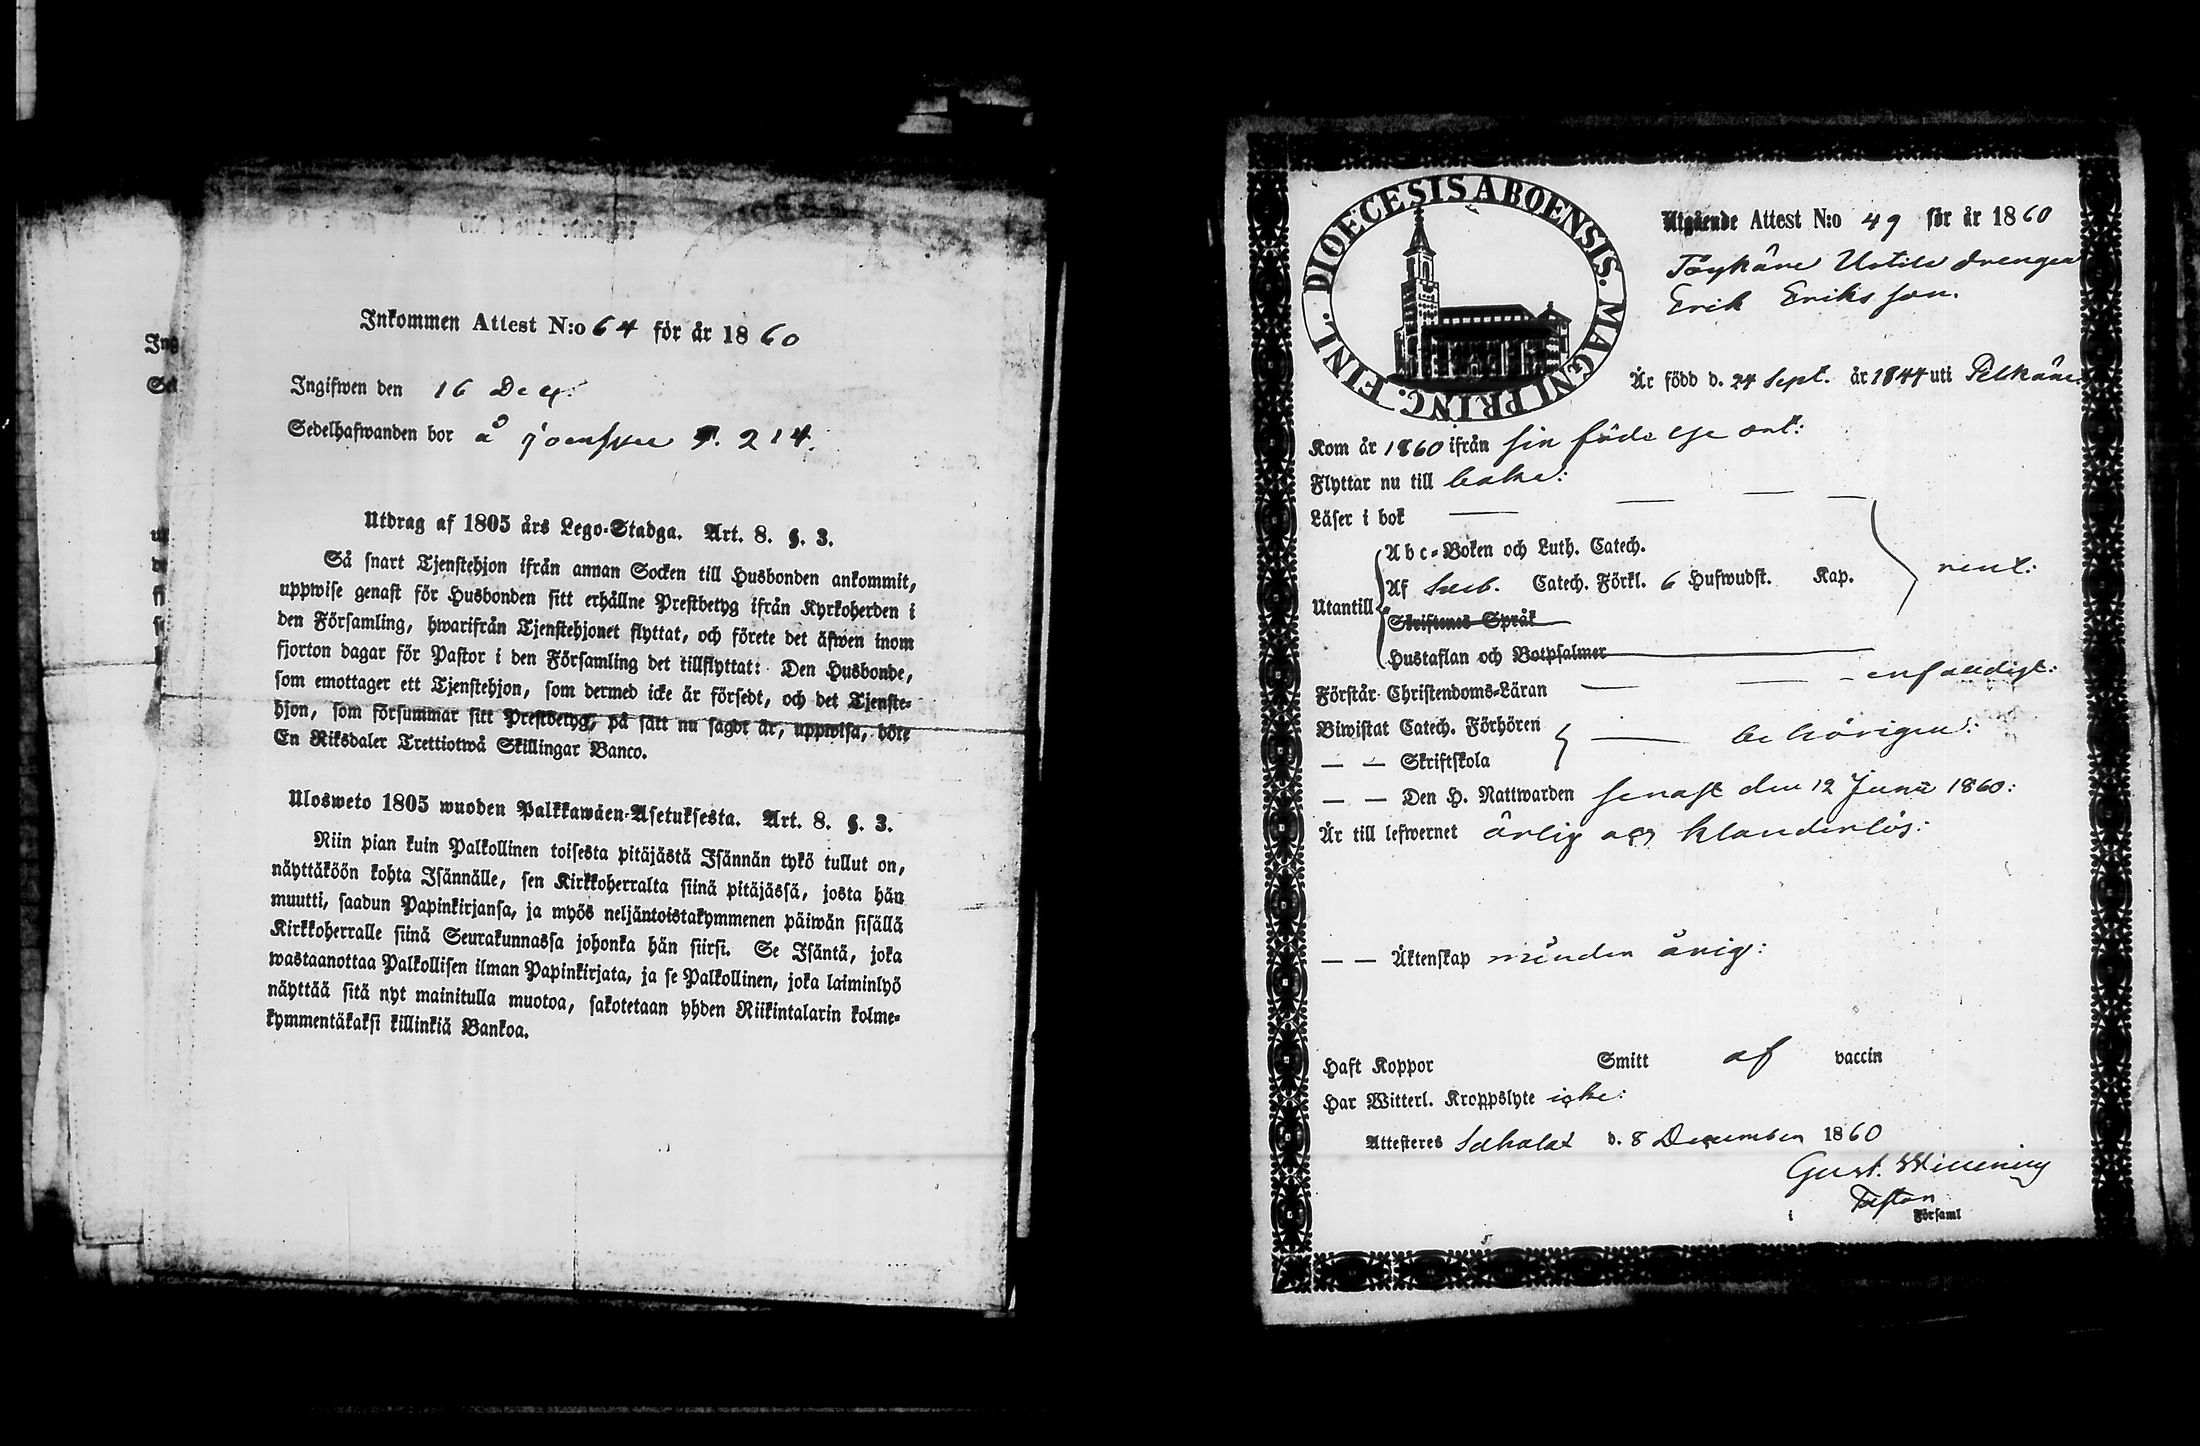 Inkommen Attest N:o 64 för år 1860
Ingifwen den 16 Dec:
Sedelhafwanden bor å 214.
Utdrag af 1805 års Lego-Stadga. Art. 8. §. 3.
Så snart Tjenstehjon ifrån annan Socken till Husbonden ankommit,
uppwise genast för Husbonden sitt erhållne Prestbetyg ifrån Kyrkoherden i
den Församling, hwarifrån Tjenstehjonet flyttat, och förete det äfwen inom
fjorton dagar för Pastor i den Församling det tillflyttat: Den Husbonde,
som emottager ett Tjenstehjon, som dermed icke är försedt, och det Tjenste-
hjon, som försummar sitt Prestbetyg, på sätt nu sagdt är, uppwisa, böte
En Riksdaler Trettiotwå Skillingar Banco.
Ulosweto 1805 wuoden Palkkawäen-Asetuksesta. Art. 8. §. 3.
Niin pian kuin Palkollinen toisesta pitäjästä Isännän tykö tullut on,
näyttäköön kohta Isännälle, sen Kirkkoherralta siinä pitäjässä, josta hän
muutti, saadun Papinkirjansa, ja myös neljäntoistakymmenen päiwän sisällä
Kirkkoherralle siinä Seurakunnassa johonka hän siirsi. Se Isäntä, joka
wastaanottaa Palkollisen ilman Papinkirjata, ja se Palkollinen, joka laiminlyö
näyttää sitä nyt mainitulla muotoa, sakotetaan yhden Riikintalarin kolme-
kymmentäkaksi killinkiä Bankoa.
DIOECESIS ABOENSIS. MAGNI PRINC. FINL.
Utgående Attest N:o 49 för år 1860
drengen
Erik Eriksson.
Är född d. 24 Sept. år 1844 uti Pelkäne
Kom år 1860 ifrån sin födelse ort:
Flyttar nu till baka:
Läser i bok
Abc-Boken och Luth. Catech.
Af Sveb. Catech. Förkl. 6 Hufwudst. Kap. rent:
Utantill
Skriftenes Språk
Hustaflan och Botpsalmer
Förstår Christendoms-Läran enfaldigt:
Biwistat Catech. Förhören behörigen:
— — Skriftskola
— — Den H. Nattwarden senast den 12 Junii 1860:
Är till lefwernet ärlig och klanderlös:
— — Äktenskap minderårig:
Haft Koppor Smitt af vaccin
Har Witterl. Kroppslyte icke:
Attesteres Sahalax d. 8 December 1860
Gust.
Pastor
i Församl